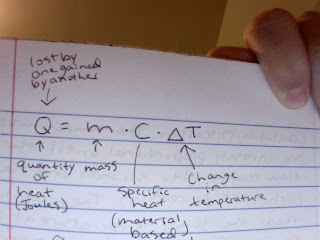 lost by
one gained
by another
Q = m · C · ΔT
quantity
of
heat
(Joules)
mass
specific
heat
(material
based)
change
in
temperature